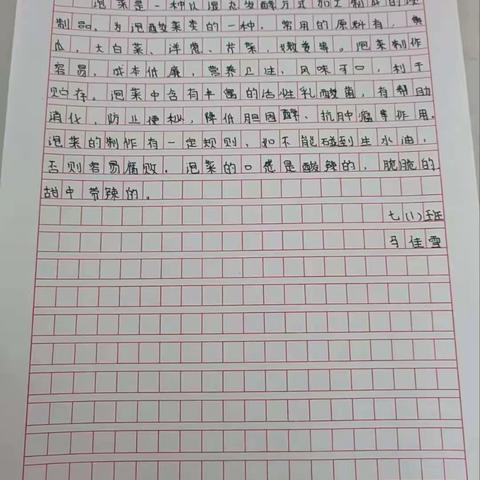 泡菜是一种以湿态发酵方式加工制成的浸
制品。为泡酸菜类的一种，常用的原料有，黄
瓜，大白菜、洋葱、芹菜，
泡菜制作
容易，成本低廉，营养卫生，风味可口，利于
贮存。泡菜中含有丰富的活性乳酸菌，有帮助
消化，防止便秘，降低胆固醇、抗肿瘤等作用。
泡菜的制作有一定规则，如不能碰到生水油，
否则容易腐败，泡菜的口感是酸辣的，脆脆的，
甜中带辣的。
七（1）班
马佳雪